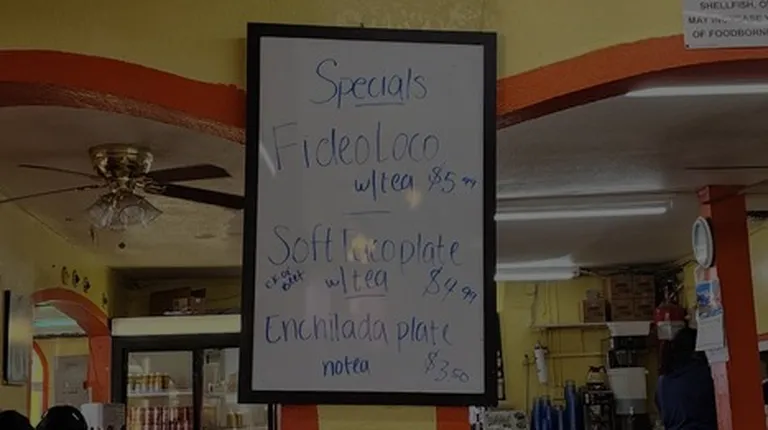 SHELLFISH, O
MAY INCREASE Y
OF FOODBORN
Specials
Fideo Loco
w/tea $5.99
Soft Taco plate
w/tea $4.99
Enchilada plate
no tea $3.50